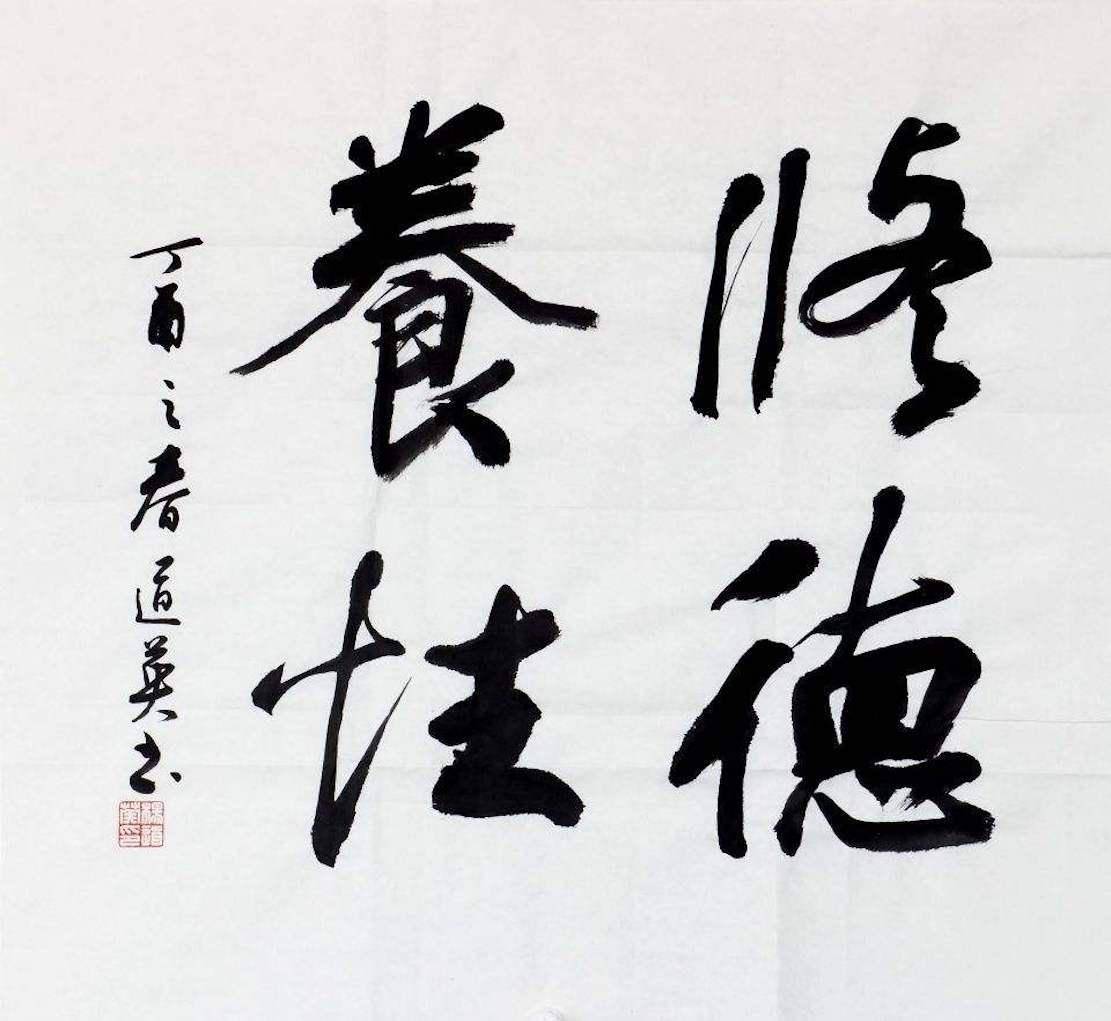 脩德
養性
丁酉之春道英书